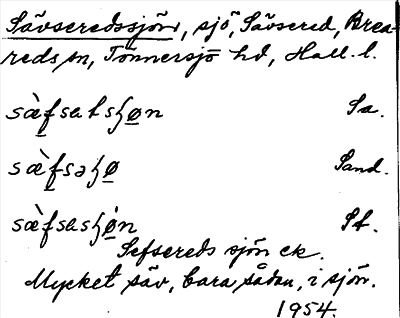 Sävseredssjön, sjö, Sävsered, Brea-
reds sn, Tönnersjö hd, Hall. l.
sæ̀fsatsɧøn Sa.
sæ̀fsəɧø Sand.
sæ̀fsasɧø̀n St.
Sefsereds sjön ek.
Mycket säv, bara sådan, i sjön.
1954.